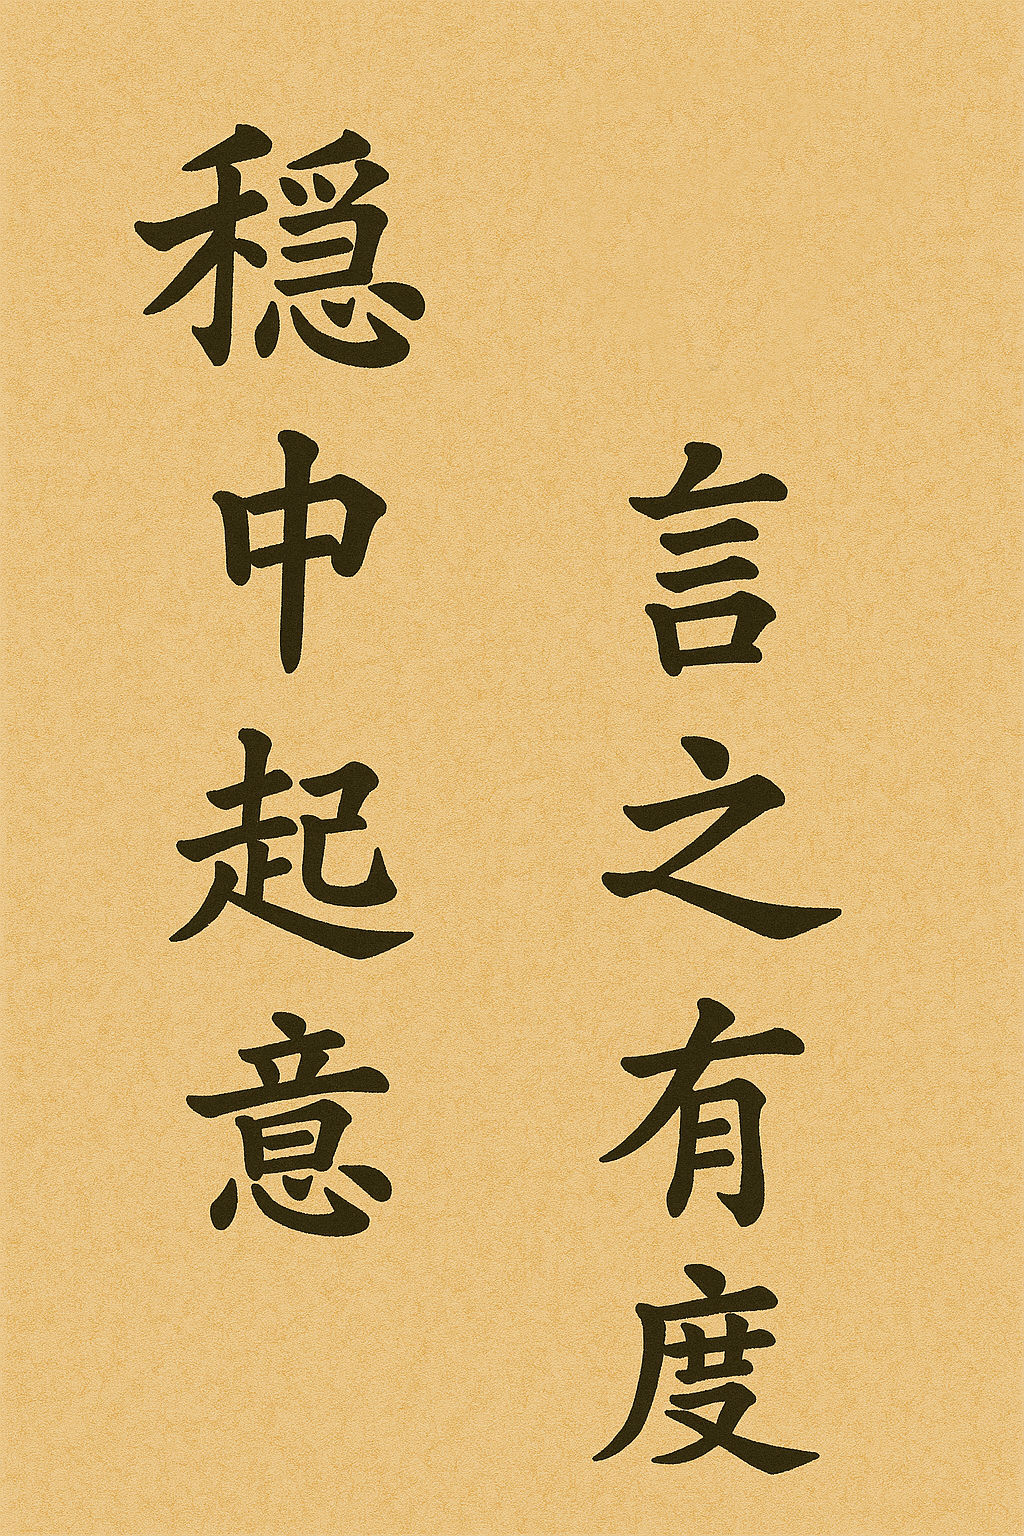 穏中起意
言之有度